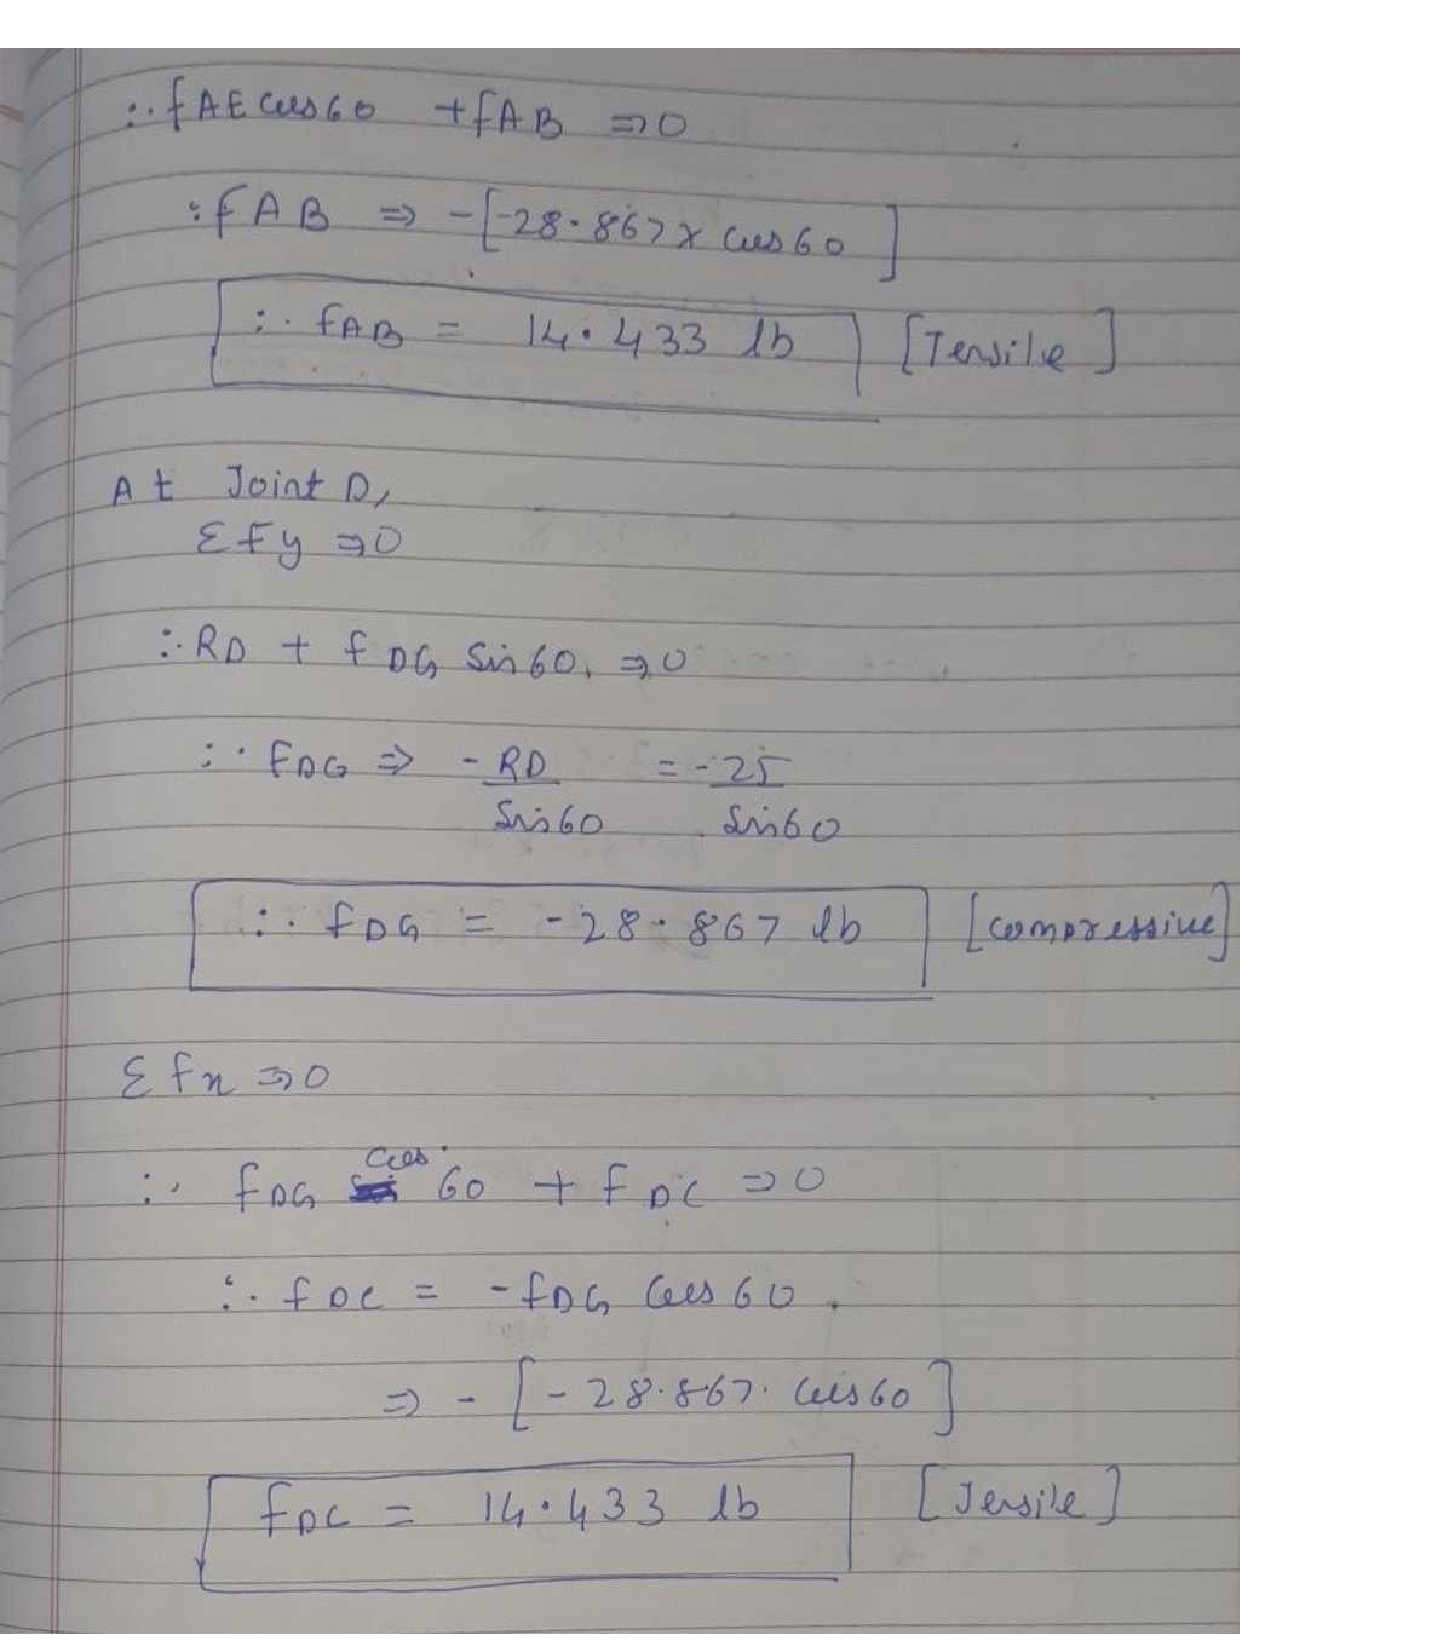 ∴ fAE cos60 + fAB ⇒ 0
∴ fAB ⇒ -[-28.867 x cos60]
∴ fAB = 14.433 lb [Tensile]
At Joint D,
Σfy ⇒ 0
∴ RD + fDG Sin60. ⇒ 0
∴ FDG ⇒ -RD/Sin60 = -25/Sin60
∴ fDG = -28.867 lb [compressive]
Σfx ⇒ 0
∴ fDG cos 60 + fDC ⇒ 0
∴ fDC = -fDG cos60.
⇒ -[-28.867. cos60]
fDC = 14.433 lb [Tensile]